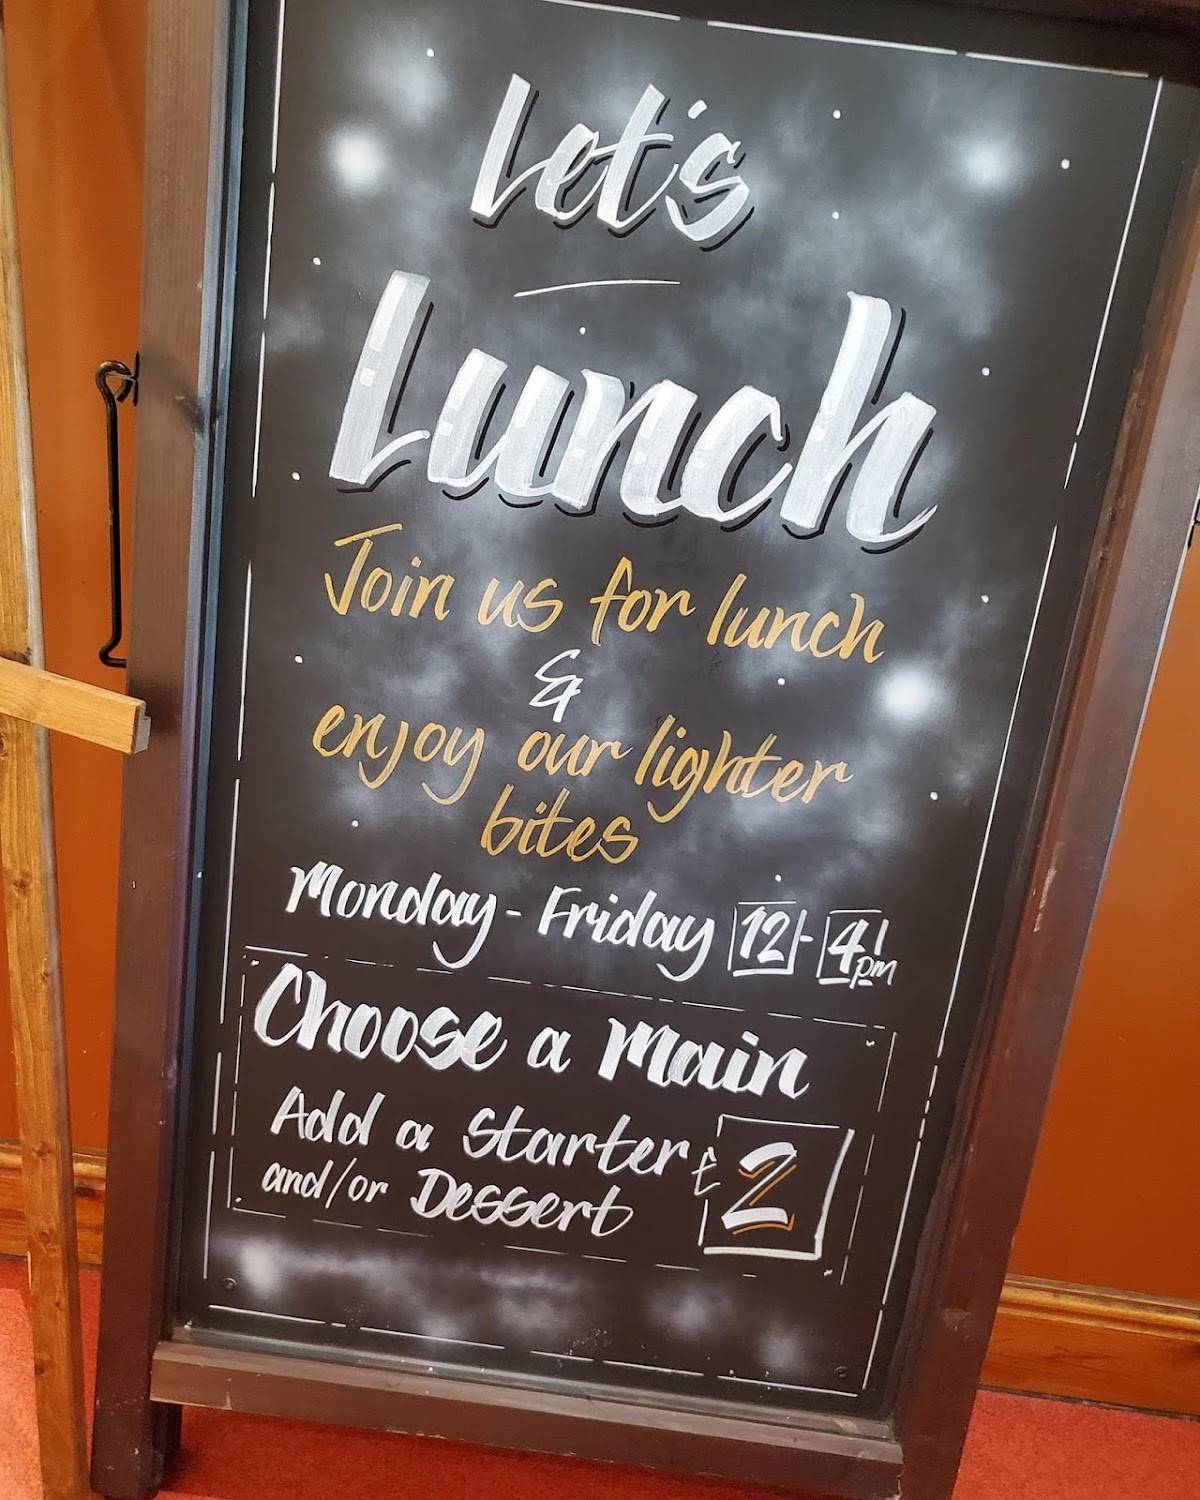 Let's
Lunch
Join us for lunch
&
enjoy our lighter
bites
Monday - Friday 12 - 4pm
Choose a Main
Add a Starter £2
and/or Dessert